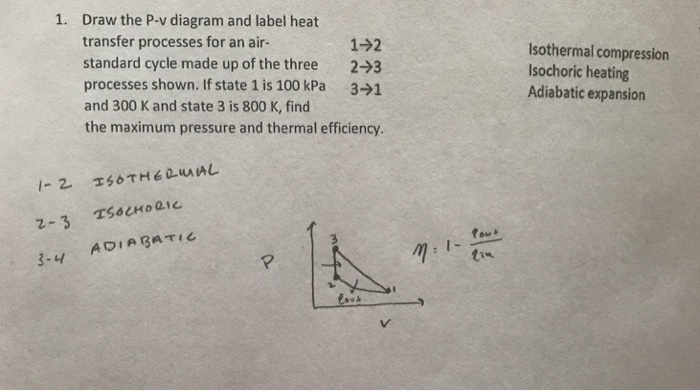 1. Draw the P-v diagram and label heat
transfer processes for an air-
standard cycle made up of the three
processes shown. If state 1 is 100 kPa
and 300 K and state 3 is 800 K, find
the maximum pressure and thermal efficiency.
1→2 Isothermal compression
2→3 Isochoric heating
3→1 Adiabatic expansion
1-2 ISOTHERMAL
2-3 ISOCHORIC
3-4 ADIABATIC
P
3
2
1
qout
V
η = 1 - qout/qin